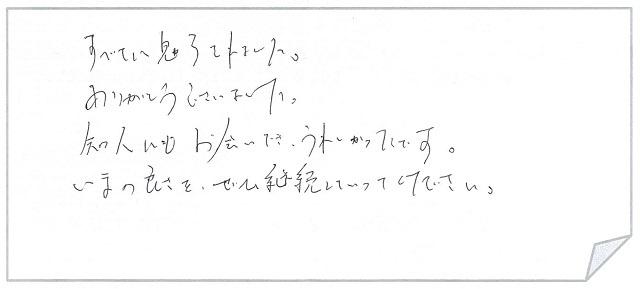 すべてに魅了されました。
ありがとうございました。
知人にもお会いでき、うれしかったです。
いまの良さを、ぜひ継続していって下さい。